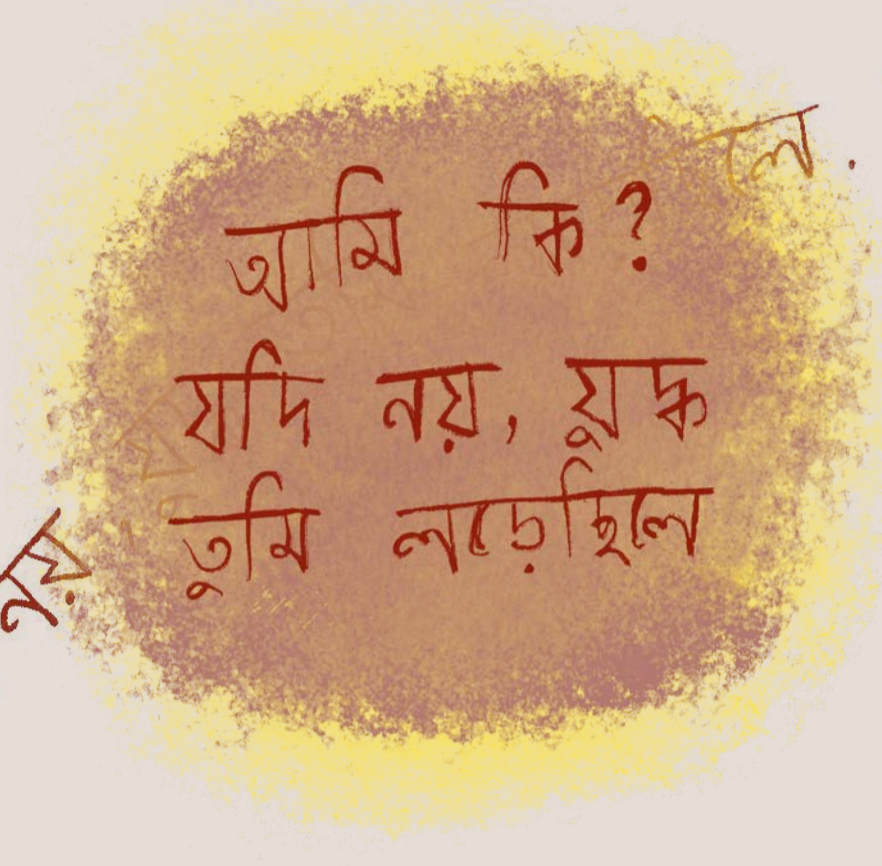 লে.
আমি কি?
যদি নয়, যুদ্ধ
তুমি লড়েছিলে
নয়